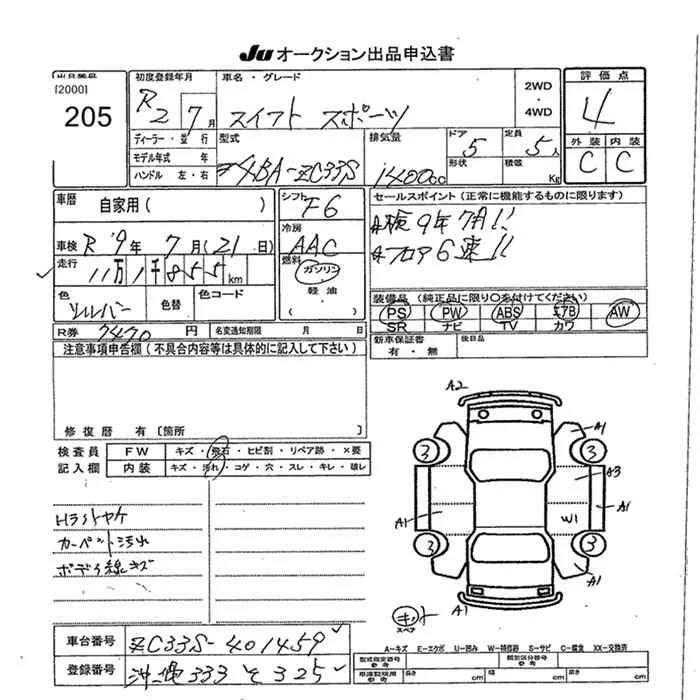 Ju オークション出品申込書
出品番号
[2000]
205
初度登録年月
R2 7月
ディーラー・並行
モデル年式 年
ハンドル 左・右
車名・グレード
スイフト スポーツ
2WD
・
4WD
型式
4BA-ZC33S
排気量
1400cc
ドア 5
形状
定員 5人
積載 Kg
評価点
4
外装 内装
C C
車歴
自家用( )
車検 R 9年 7月(21日)
走行 11万1千855km
色 シルバー
色替
色コード
R券 7470円
名変通知期限 月 日
シフト F6
冷房 AAC
燃料 ガソリン
・
軽油
( )
セールスポイント(正常に機能するものに限ります)
検9年7月!!
フロア6速!!
装備品(純正品に限り○を付けてください)
PS PW ABS エアB AW
SR ナビ TV カワ
新車保証書
有・無
後日品
注意事項申告欄(不具合内容等は具体的に記入して下さい)
修復歴 有〔箇所 〕
検査員
記入欄
FW キズ・飛石・ヒビ割・リペア跡・×要
内装 キズ・汚れ・コゲ・穴・スレ・キレ・破レ
Hライトヤケ
カーペット汚れ
ボディ線キズ
A2
A1
3 3
A3
A1 A1
W1
3 3
A1
A1
キット
スペア
A=キズ E=エクボ U=凹み W=補修跡 S=サビ C=腐食 XX=交換済
車台番号 ZC33S-401459
登録番号 沖縄 333 そ 325
型式指定番号
参考
類別区分番号
参考
車庫証明用
参考
長さ cm
幅 cm
高さ cm